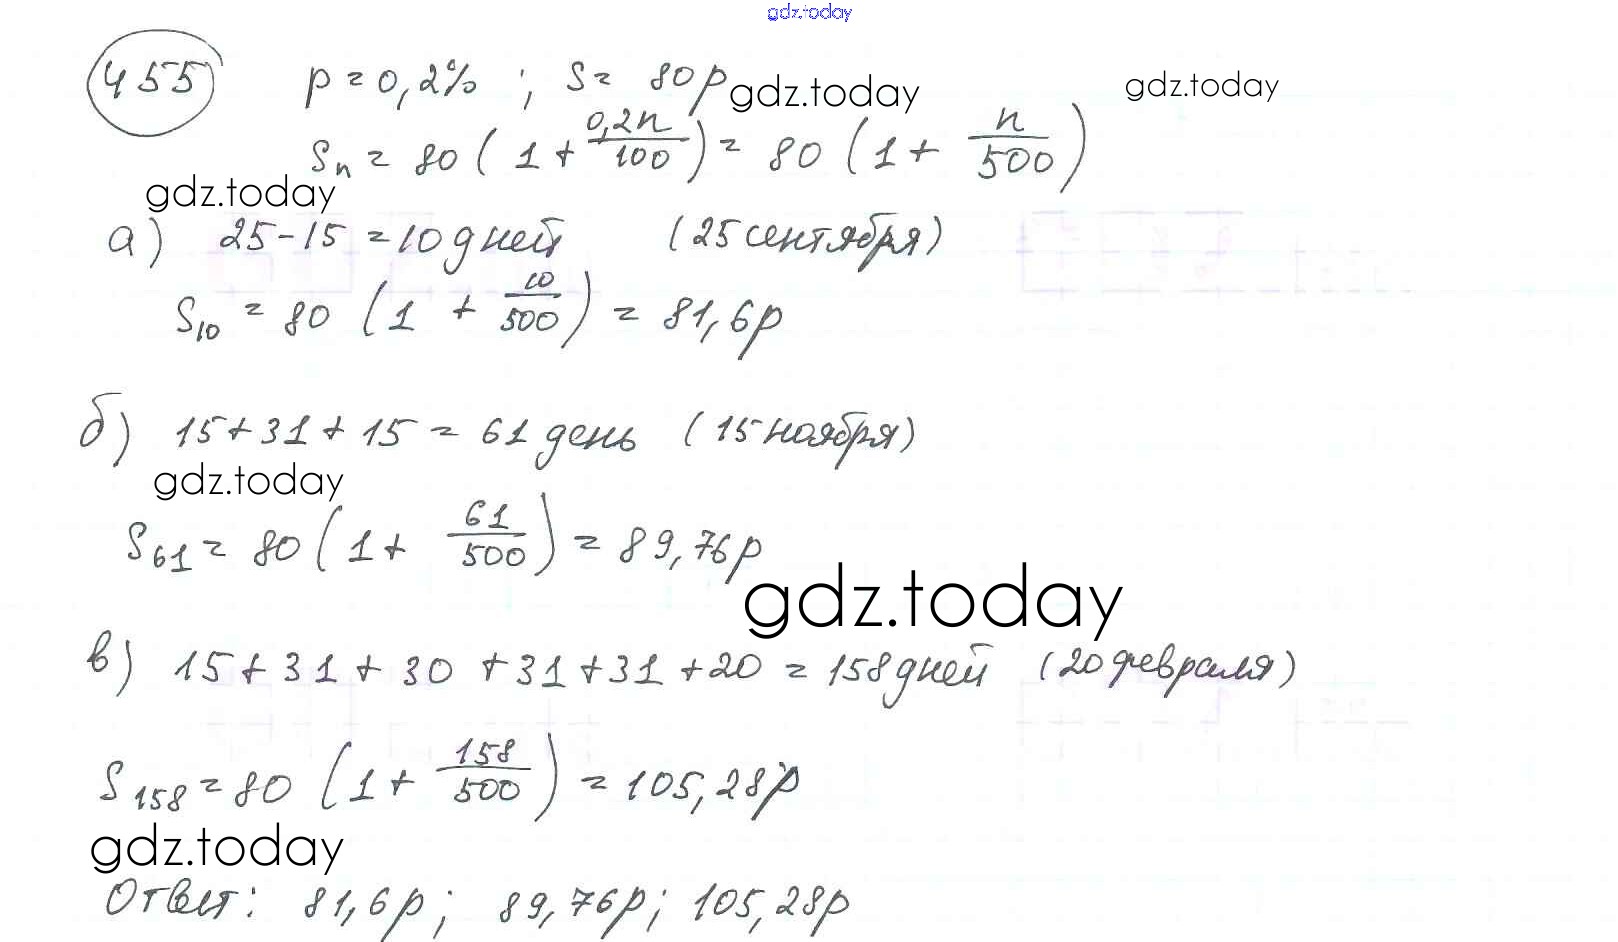 gdz.today
455 p = 0,2% ; S = 80р gdz.today gdz.today
Sn = 80 ( 1 + 0,2n/100 ) = 80 ( 1 + n/500 )
gdz.today
а) 25-15 = 10 дней (25 сентября)
S10 = 80 ( 1 + 10/500 ) = 81,6р
б) 15+31+15 = 61 день (15 ноября)
gdz.today
S61 = 80 ( 1 + 61/500 ) = 89,76р
gdz.today
в) 15+31+30+31+31+20 = 158 дней (20 февраля)
S158 = 80 ( 1 + 158/500 ) = 105,28р
gdz.today
Ответ: 81,6р; 89,76р; 105,28р